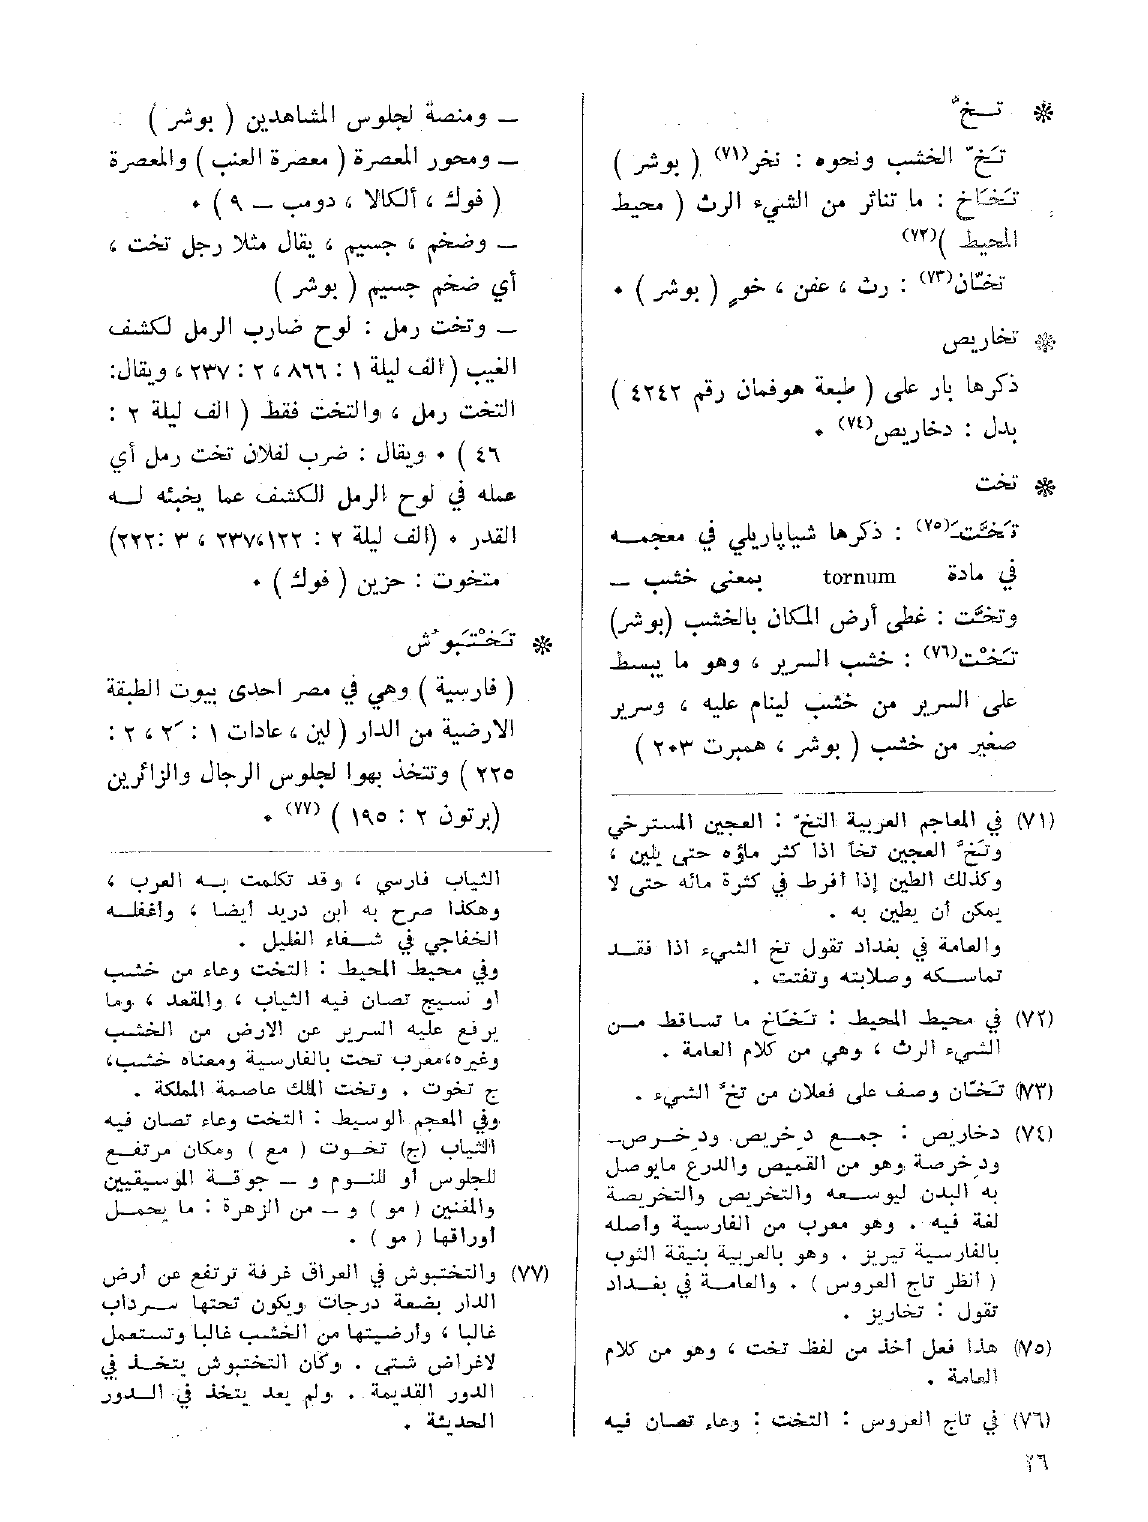 ❋ تـخّ
تَخّ الخشب ونحوه : نخر(٧١) ( بوشر )
تَخّاخ : ما تناثر من الشيء الرث ( محيط
المحيط )(٧٢)
تخّان(٧٣) : رث ، عفن ، خوٍ ( بوشر ) .
❋ تخاريص
ذكرها بار علي ( طبعة هوفمان رقم ٤٢٤٢ )
بدل : دخاريص(٧٤) .
❋ تخت
تَخَّتَ(٧٥) : ذكرها شياپاريلي في معجمه
في مادة tornum بمعنى خشب —
وتخَّت : غطى أرض المكان بالخشب (بوشر)
تَخْت(٧٦) : خشب السرير ، وهو ما يبسط
على السرير من خشب لينام عليه ، وسرير
صغير من خشب ( بوشر ، همبرت ٢٠٣ )
(٧١) في المعاجم العربية التخّ : العجين المسترخي
وتخَّ العجين تخاً اذا كثر ماؤه حتى يلين ،
وكذلك الطين إذا أفرط في كثرة مائه حتى لا
يمكن أن يطين به .
والعامة في بغداد تقول تخ الشيء اذا فقـد
تماسـكه وصلابته وتفتت .
(٧٢) في محيط المحيط : تَخّاخ ما تساقط مـن
الشيء الرث ، وهي من كلام العامة .
(٧٣) تَخّان وصف على فعلان من تخَّ الشيء .
(٧٤) دخاريص : جمـع دِخريص ودِخـرص—
ودِخرصة وهو من القميص والدرع مايوصل
به البدن ليوسـعه والتخريص والتخريصة
لغة فيه . وهو معرب من الفارسية وأصله
بالفارسية تيريز . وهو بالعربية بنيقة الثوب
( انظر تاج العروس ) . والعامـة في بغـداد
تقول : تخاريز .
(٧٥) هذا فعل أخذ من لفظ تخت ، وهو من كلام
العامة .
(٧٦) في تاج العروس : التخت : وعاء تصان فيه
٢٦
— ومنصة لجلوس المشاهدين ( بوشر )
— ومحور المعصرة ( معصرة العنب ) والمعصرة
( فوك ، ألكالا ، دومب — ٩ ) .
— وضخم ، جسيم ، يقال مثلا رجل تخت ،
أي ضخم جسيم ( بوشر )
— وتخت رمل : لوح ضارب الرمل لكشف
الغيب (الف ليلة ١ : ٨٦٦ ، ٢ : ٢٣٧ ، ويقال:
التخت رمل ، والتخت فقط ( الف ليلة ٢ :
٤٦ ) . ويقال : ضرب لفلان تخت رمل أي
عمله في لوح الرمل للكشف عما يخبئه لـه
القدر . (الف ليلة ٢ : ١٢٢،٢٣٧ ، ٣ :٢٢٢)
متخوت : حزين ( فوك ) .
❋ تَخْتَبوُش
( فارسية ) وهي في مصر احدى بيوت الطبقة
الارضية من الدار ( لين ، عادات ١ : ، ٢ :
٢٢٥ ) وتتخذ بهوا لجلوس الرجال والزائرين
(برتون ٢ : ١٩٥ ) (٧٧) .
الثياب فارسي ، وقد تكلمت بـه العرب ،
وهكذا صرح به ابن دريد أيضا ، وأغفلـه
الخفاجي في شـفاء الغليل .
وفي محيط المحيط : التخت وعاء من خشب
أو نسيج تصان فيه الثياب ، والمقعد ، وما
يرفع عليه السرير عن الارض من الخشب
وغيره،معرب تخت بالفارسية ومعناه خشب،
ج تخوت . وتخت الملك عاصمة المملكة .
وفي المعجم الوسيط : التخت وعاء تصان فيه
الثياب (ج) تخـوت ( مع ) ومكان مرتفـع
للجلوس أو للنـوم و — جوقـة الموسيقيين
والمغنين ( مو ) و — من الزهرة : ما يحمـل
أوراقها ( مو ) .
(٧٧) والتختبوش في العراق غرفة ترتفع عن أرض
الدار بضعة درجات ويكون تحتها سـرداب
غالبا ، وأرضيتها من الخشب غالبا وتستعمل
لاغراض شتى . وكان التختبوش يتخـذ في
الدور القديمة . ولم يعد يتخذ في الـدور
الحديثة .